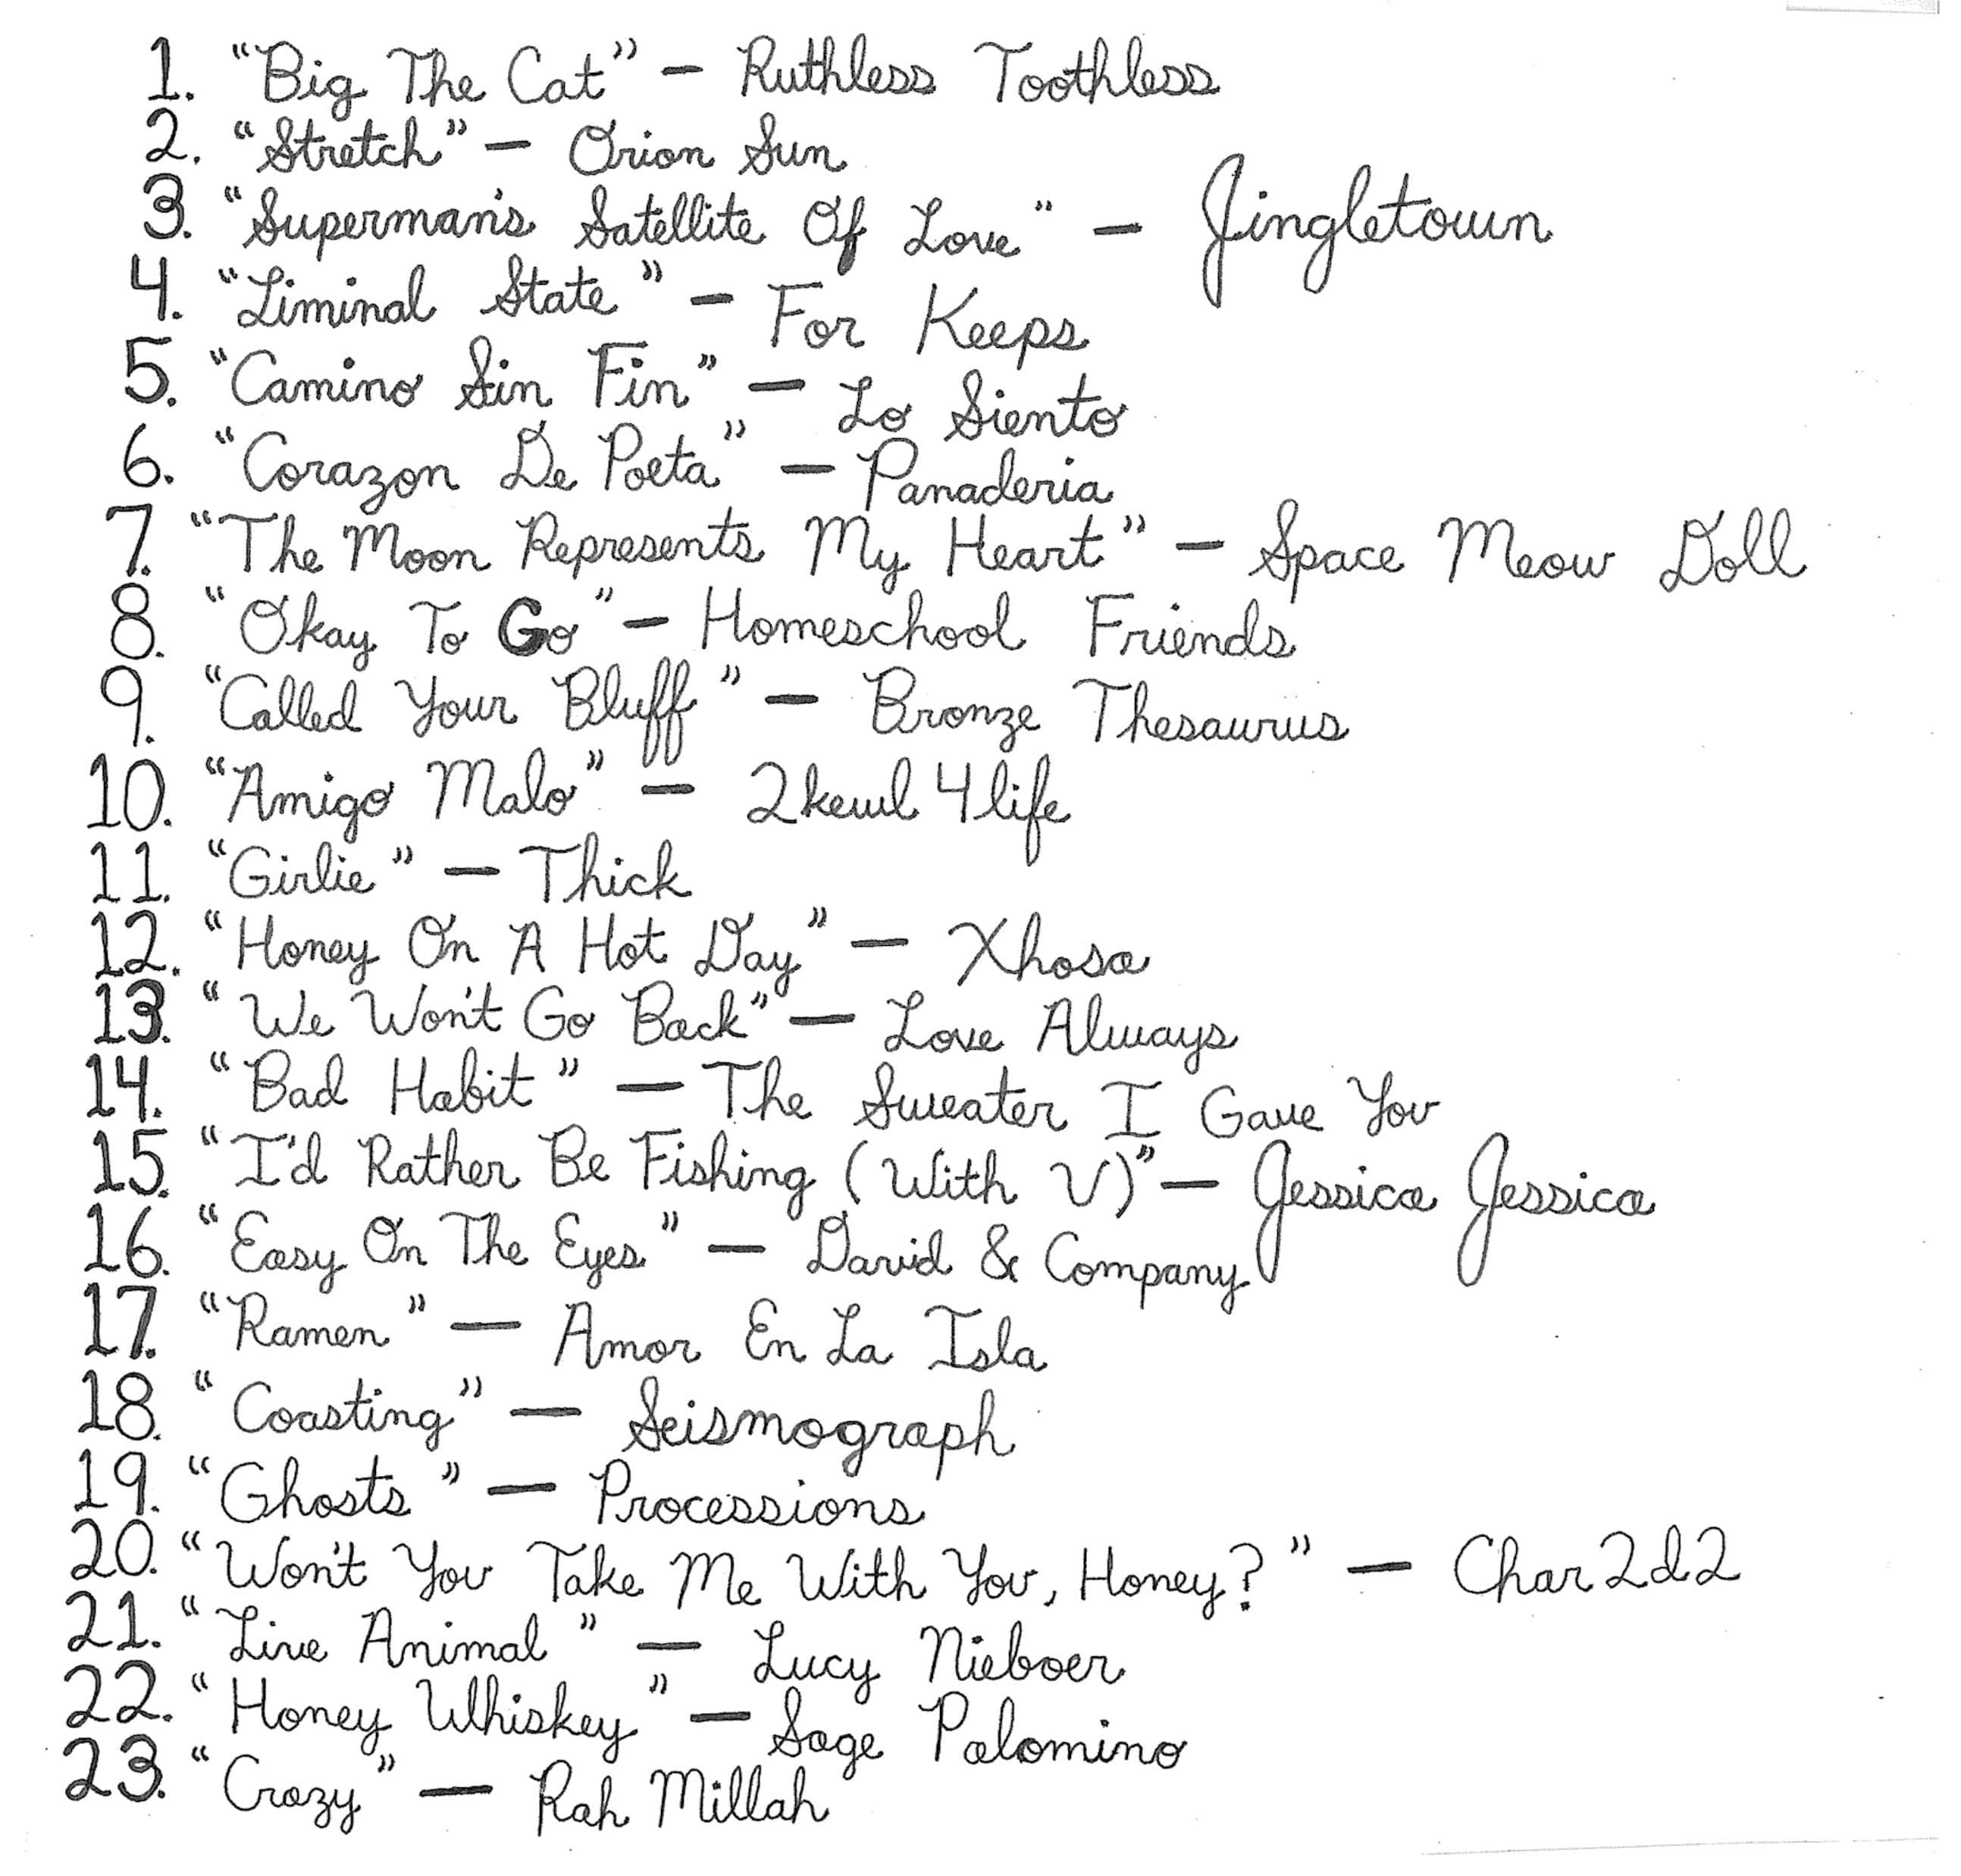 1. "Big The Cat" – Ruthless Toothless
2. "Stretch" – Orion Sun
3. "Superman's Satellite Of Love" – Jingletown
4. "Liminal State" – For Keeps
5. "Camino Sin Fin" – Lo Siento
6. "Corazon De Poeta" – Panaderia
7. "The Moon Represents My Heart" – Space Meow Doll
8. "Okay To Go" – Homeschool Friends
9. "Called Your Bluff" – Bronze Thesaurus
10. "Amigo Malo" – 2kewl 4life
11. "Girlie" – Thick
12. "Honey On A Hot Day" – Xhosa
13. "We Won't Go Back" – Love Always
14. "Bad Habit" – The Sweater I Gave You
15. "I'd Rather Be Fishing (With V)" – Jessica Jessica
16. "Easy On The Eyes" – David & Company
17. "Ramen" – Amor En La Isla
18. "Coasting" – Seismograph
19. "Ghosts" – Processions
20. "Won't You Take Me With You, Honey?" – Char2d2
21. "Live Animal" – Lucy Nieboer
22. "Honey Whiskey" – Sage Palomino
23. "Crazy" – Rah Millah